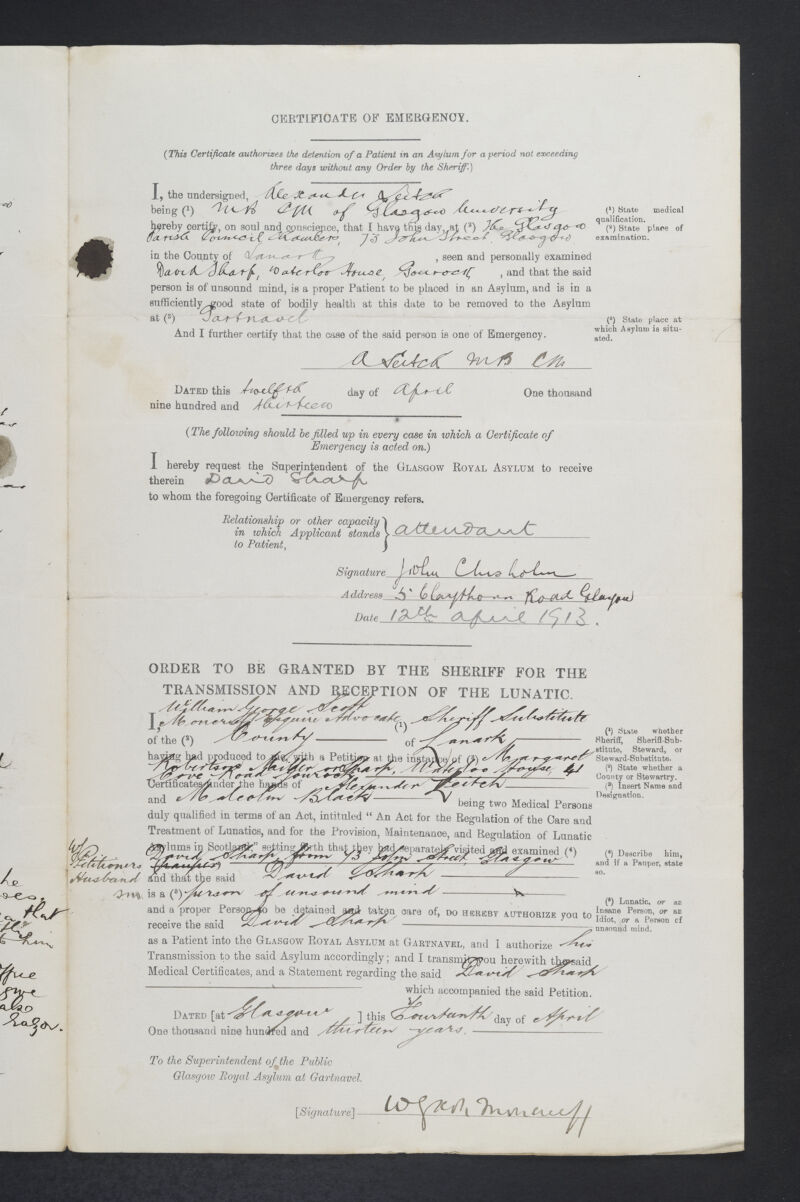 CERTIFICATE OF EMERGENCY.
(This Certificate authorizes the detention of a Patient in an Asylum for a period not exceeding
three days without any Order by the Sheriff.)
I, the undersigned, Alexander Leitch
being (¹) MB CM of Glasgow University
hereby certify, on soul and conscience, that I have this day, at (²) The Glasgow
Parish Council Chambers, 73 John Street, Glasgow
in the County of Lanark, seen and personally examined
David Sharp, Waterloo House, Gourock, and that the said
person is of unsound mind, is a proper Patient to be placed in an Asylum, and is in a
sufficiently good state of bodily health at this date to be removed to the Asylum
at (³) Gartnavel
And I further certify that the case of the said person is one of Emergency.
A Leitch MB CM
DATED this twelfth day of April One thousand
nine hundred and thirteen
(¹) State medical
qualification.
(²) State place of
examination.
(³) State place at
which Asylum is situ-
ated.
(The following should be filled up in every case in which a Certificate of
Emergency is acted on.)
I hereby request the Superintendent of the GLASGOW ROYAL ASYLUM to receive
therein David Sharp
to whom the foregoing Certificate of Emergency refers.
Relationship or other capacity
in which Applicant stands
to Patient,
attendant
Signature John Chisholm
Address 5 Claythorn Road Glasgow
Date 12th April 1913.
ORDER TO BE GRANTED BY THE SHERIFF FOR THE
TRANSMISSION AND RECEPTION OF THE LUNATIC.
William George Scott
I, Moncreiff Esquire Advocate (¹) Sheriff Substitute
of the (²) County of Lanark
having had produced to me with a Petition at the instance of (³) Margaret
Robertson or Sharp, Waterloo House, 41
Cove Road Gourock
Certificates under the hands of Alexander Leitch
and Malcolm Black being two Medical Persons
duly qualified in terms of an Act, intituled "An Act for the Regulation of the Care and
Treatment of Lunatics, and for the Provision, Maintenance, and Regulation of Lunatic
Asylums in Scotland," setting forth that they had separately visited and examined (⁴)
David Sharp, from 73 John Street, Glasgow
and that the said David Sharp
is a (⁵) person of unsound mind
and a proper Person to be detained and taken care of, DO HEREBY AUTHORIZE you to
receive the said David Sharp
as a Patient into the GLASGOW ROYAL ASYLUM at GARTNAVEL, and I authorize his
Transmission to the said Asylum accordingly; and I transmit you herewith the said
Medical Certificates, and a Statement regarding the said David Sharp
which accompanied the said Petition.
DATED [at Glasgow ] this Fourteenth day of April
One thousand nine hundred and thirteen years.
To the Superintendent of the Public
Glasgow Royal Asylum at Gartnavel.
[Signature] W G Scott Moncrieff
(¹) State whether
Sheriff, Sheriff-Sub-
stitute, Steward, or
Steward-Substitute.
(²) State whether a
County or Stewartry.
(³) Insert Name and
Designation.
(⁴) Describe him,
and if a Pauper, state
so.
(⁵) Lunatic, or an
Insane Person, or an
Idiot, or a Person of
unsound mind.
Petitioners
Husband
he
that
him
also